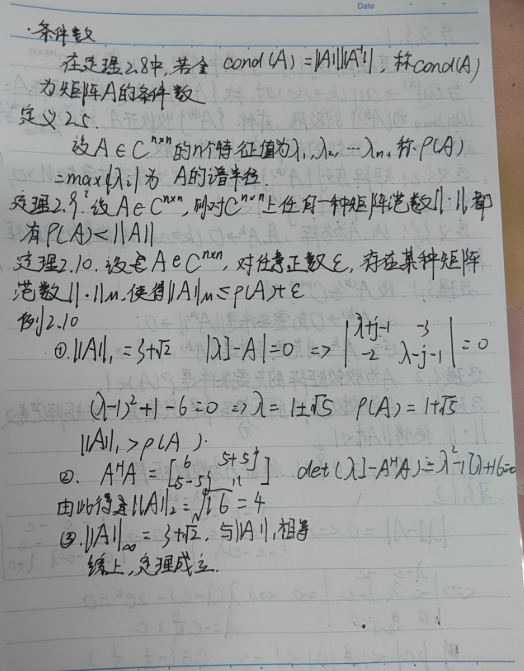 Date
·条件数
在定理2.8中,若令 cond(A)=||A||||A⁻¹||,称cond(A)
为矩阵A的条件数
定义2.5.
设A∈C^{n×n}的n个特征值为λ₁,λ₂,…λₙ,称ρ(A)
=max|λᵢ|为 A的谱半径.
定理2.9:设A∈C^{n×n},则对C^{n×n}上任何一种矩阵范数||·||,都
有ρ(A)≤||A||
定理2.10.设A∈C^{n×n},对任意正数ε,存在某种矩阵
范数||·||_M,使得||A||_M≤ρ(A)+ε
例2.10
①.||A||₁=3+√2 |λI-A|=0 => |λ+j-1 -3; -2 λ-j-1|=0
(λ-1)²+1-6=0 => λ=1±√5 ρ(A)=1+√5
||A||₁>ρ(A).
②. AᴴA=[6 5+5j; 5-5j 11] det(λI-AᴴA)=λ²-17λ+16=0
由此得||A||₂=√16=4
③.||A||_∞=3+√2,与||A||₁相等
综上,定理成立.